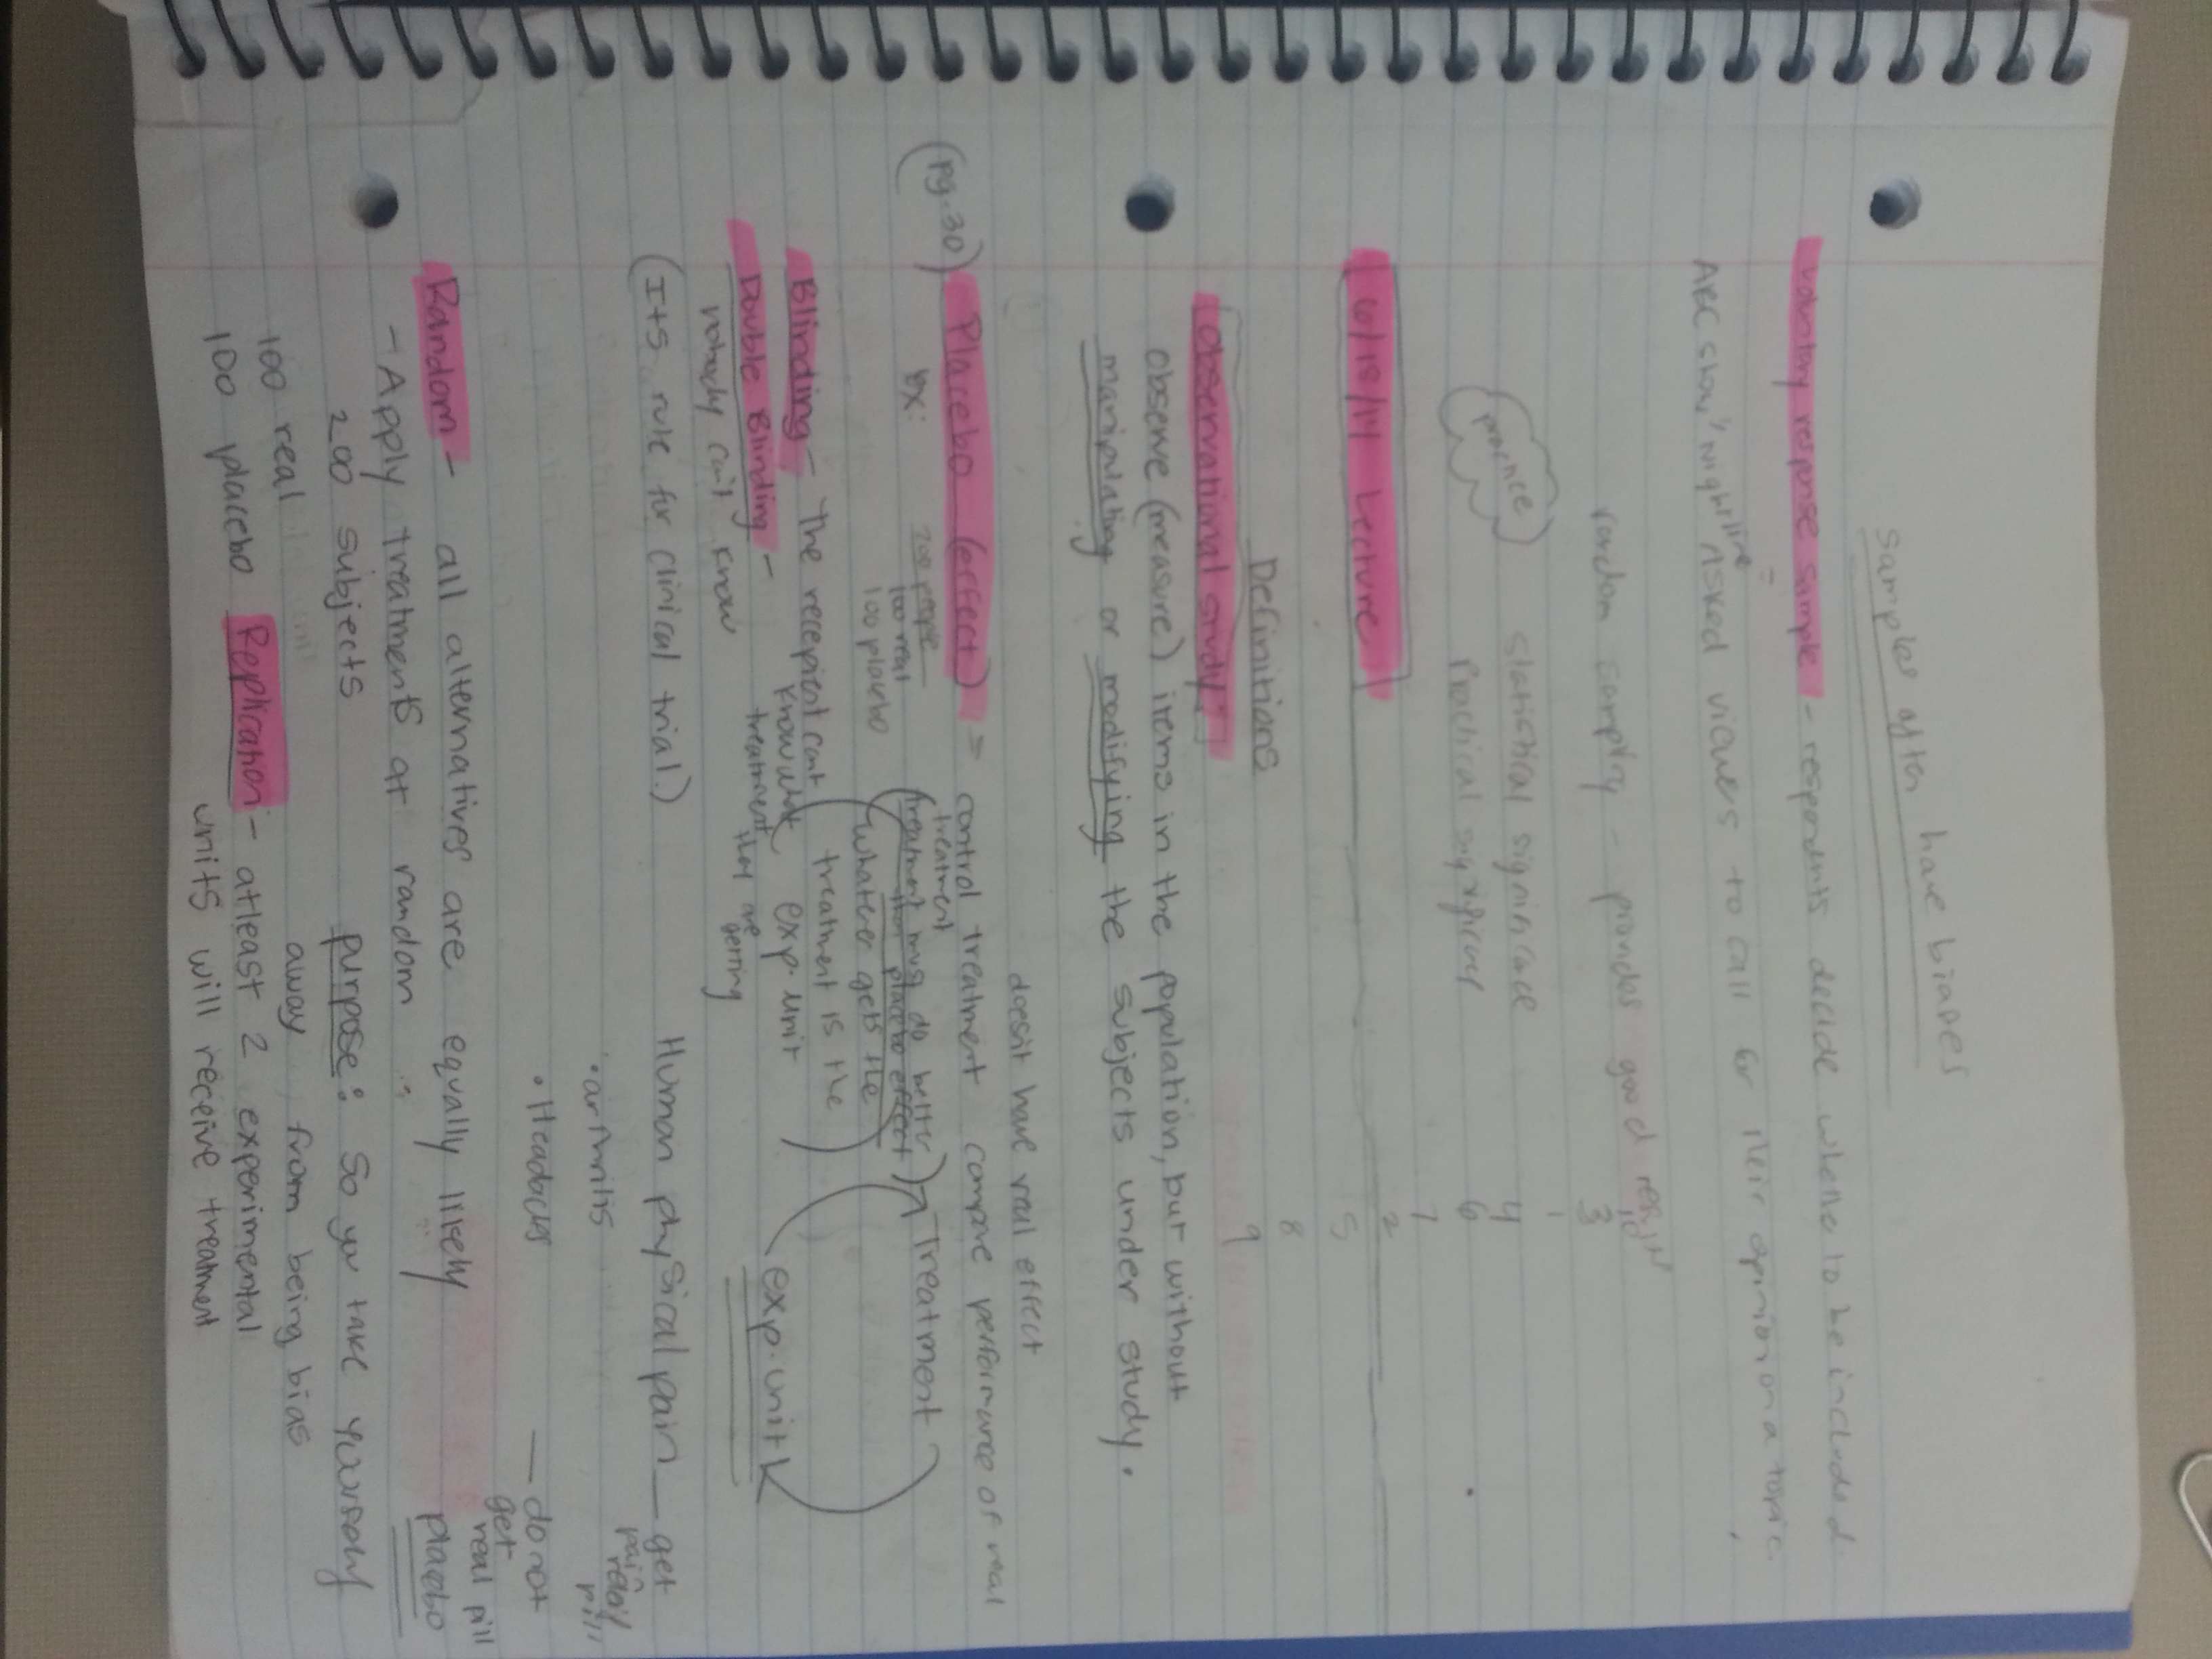 samples often have biases
voluntary response sample - respondents decide whether to be included.
ABC show "Nightline" Asked viewers to call for their opinion on a topic.
random sampling - provides good
10
3
1
practice
statistical significance
4
Practical significance
6
7
2
6/18/14 Lecture
5
8
Definitions
9
Observational study
observe (measure) items in the population, but without
manipulating or modifying the subjects under study.
doesn't have real effect
(pg. 30) Placebo (effect) = control treatment compare performance of real
treatment
(treatment must do better
than placebo effect)
Treatment
ex: 200 people
100 real
100 placebo
(whatever gets the
treatment is the
exp. unit
exp. unit
Blinding - The recepient cant
know what
treatment they are
getting
Double Blinding -
nobody can't know
(Its rule for clinical trial.)
Human physical pain — get
pill
• arthritis
• Headaches
— do not
get
real pill
placebo
Random - all alternatives are equally likely
- Apply treatments at random
200 subjects
purpose: so you take yourself
away from being bias
100 real
100 placebo
Replication - atleast 2 experimental
units will receive treatment